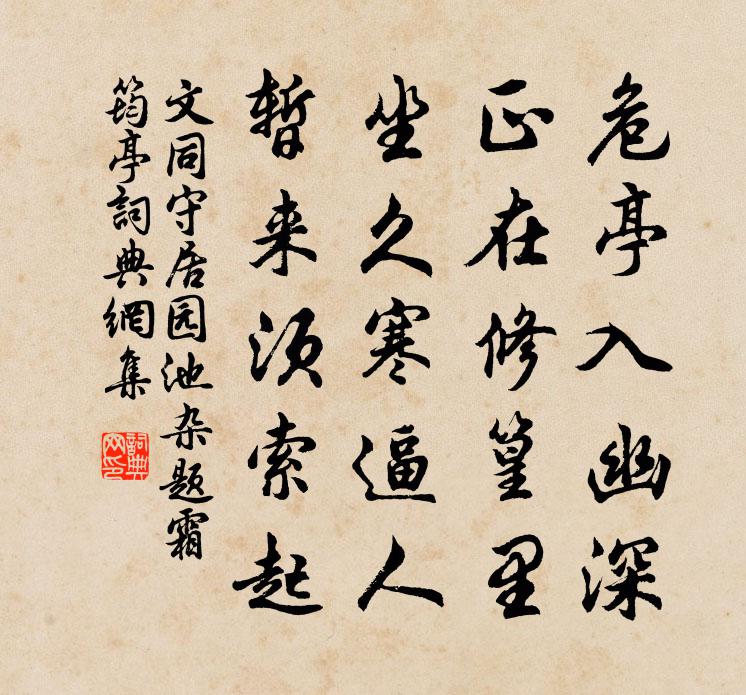 危亭入幽深
正在修篁里
坐久寒逼人
暂来须索起
文同守居园池杂题霜
筠亭詞典網集
詞典
网印